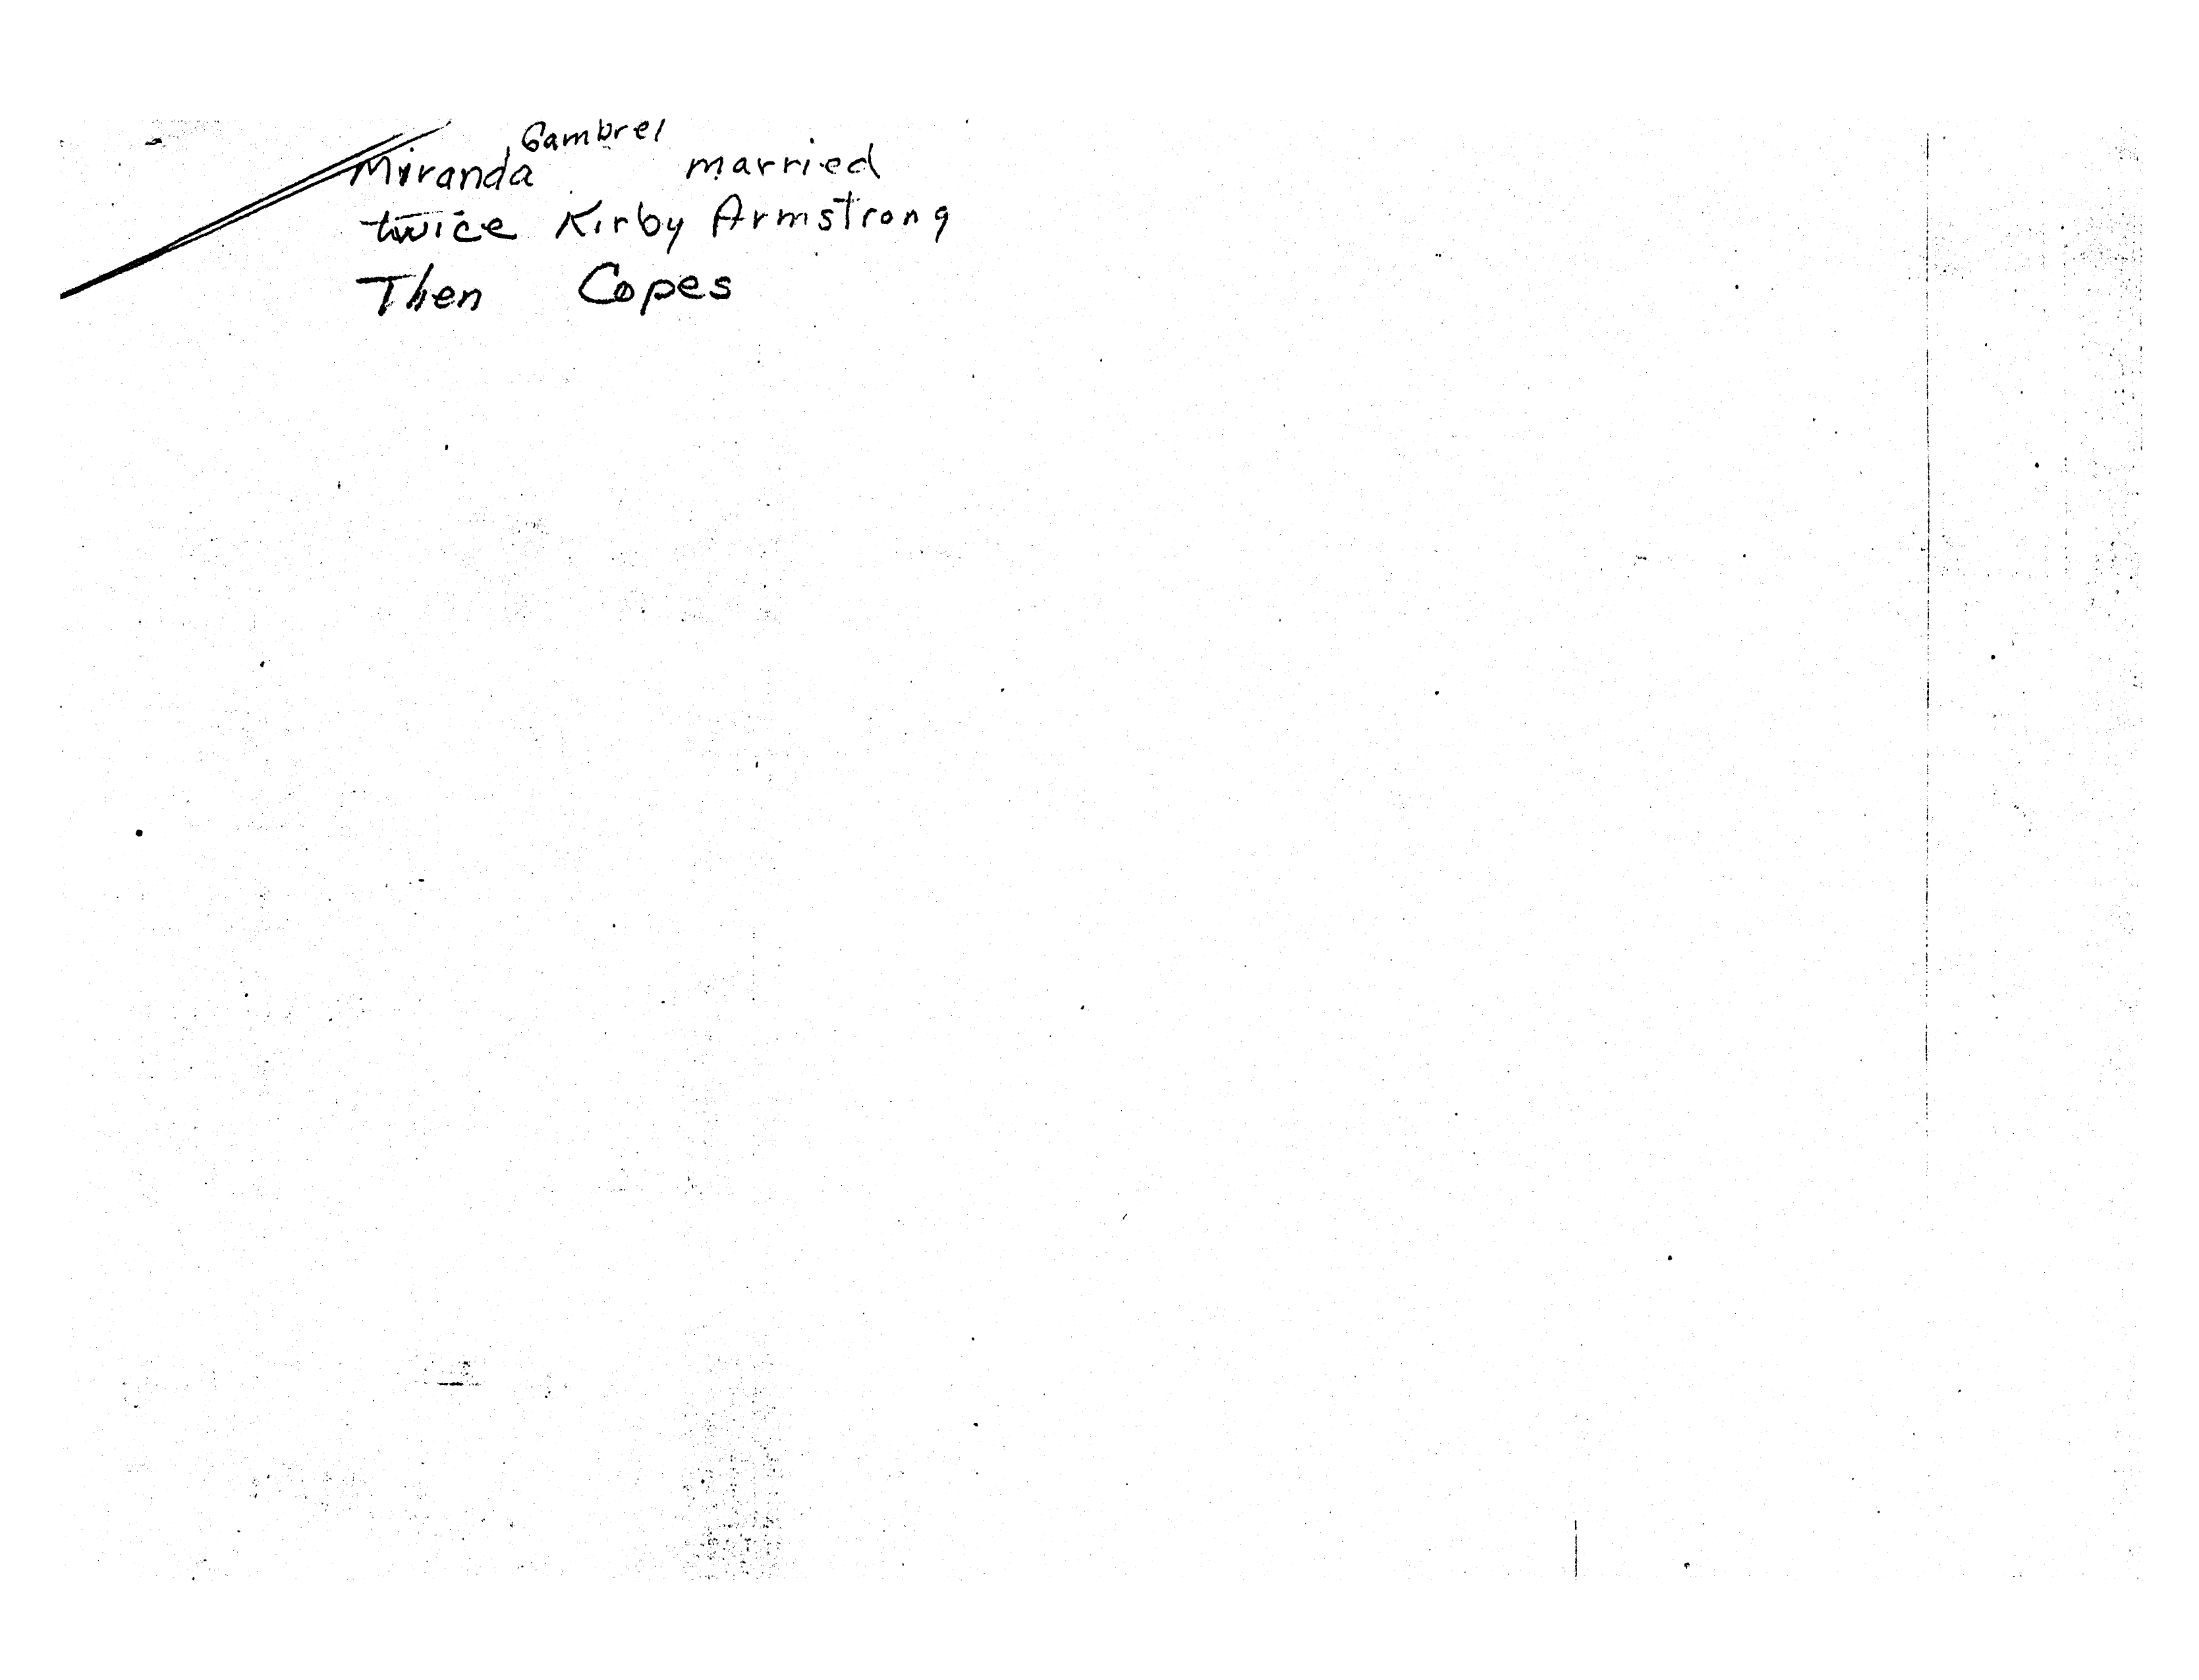 Miranda Gambrel married
twice Kirby Armstrong
Then Copes